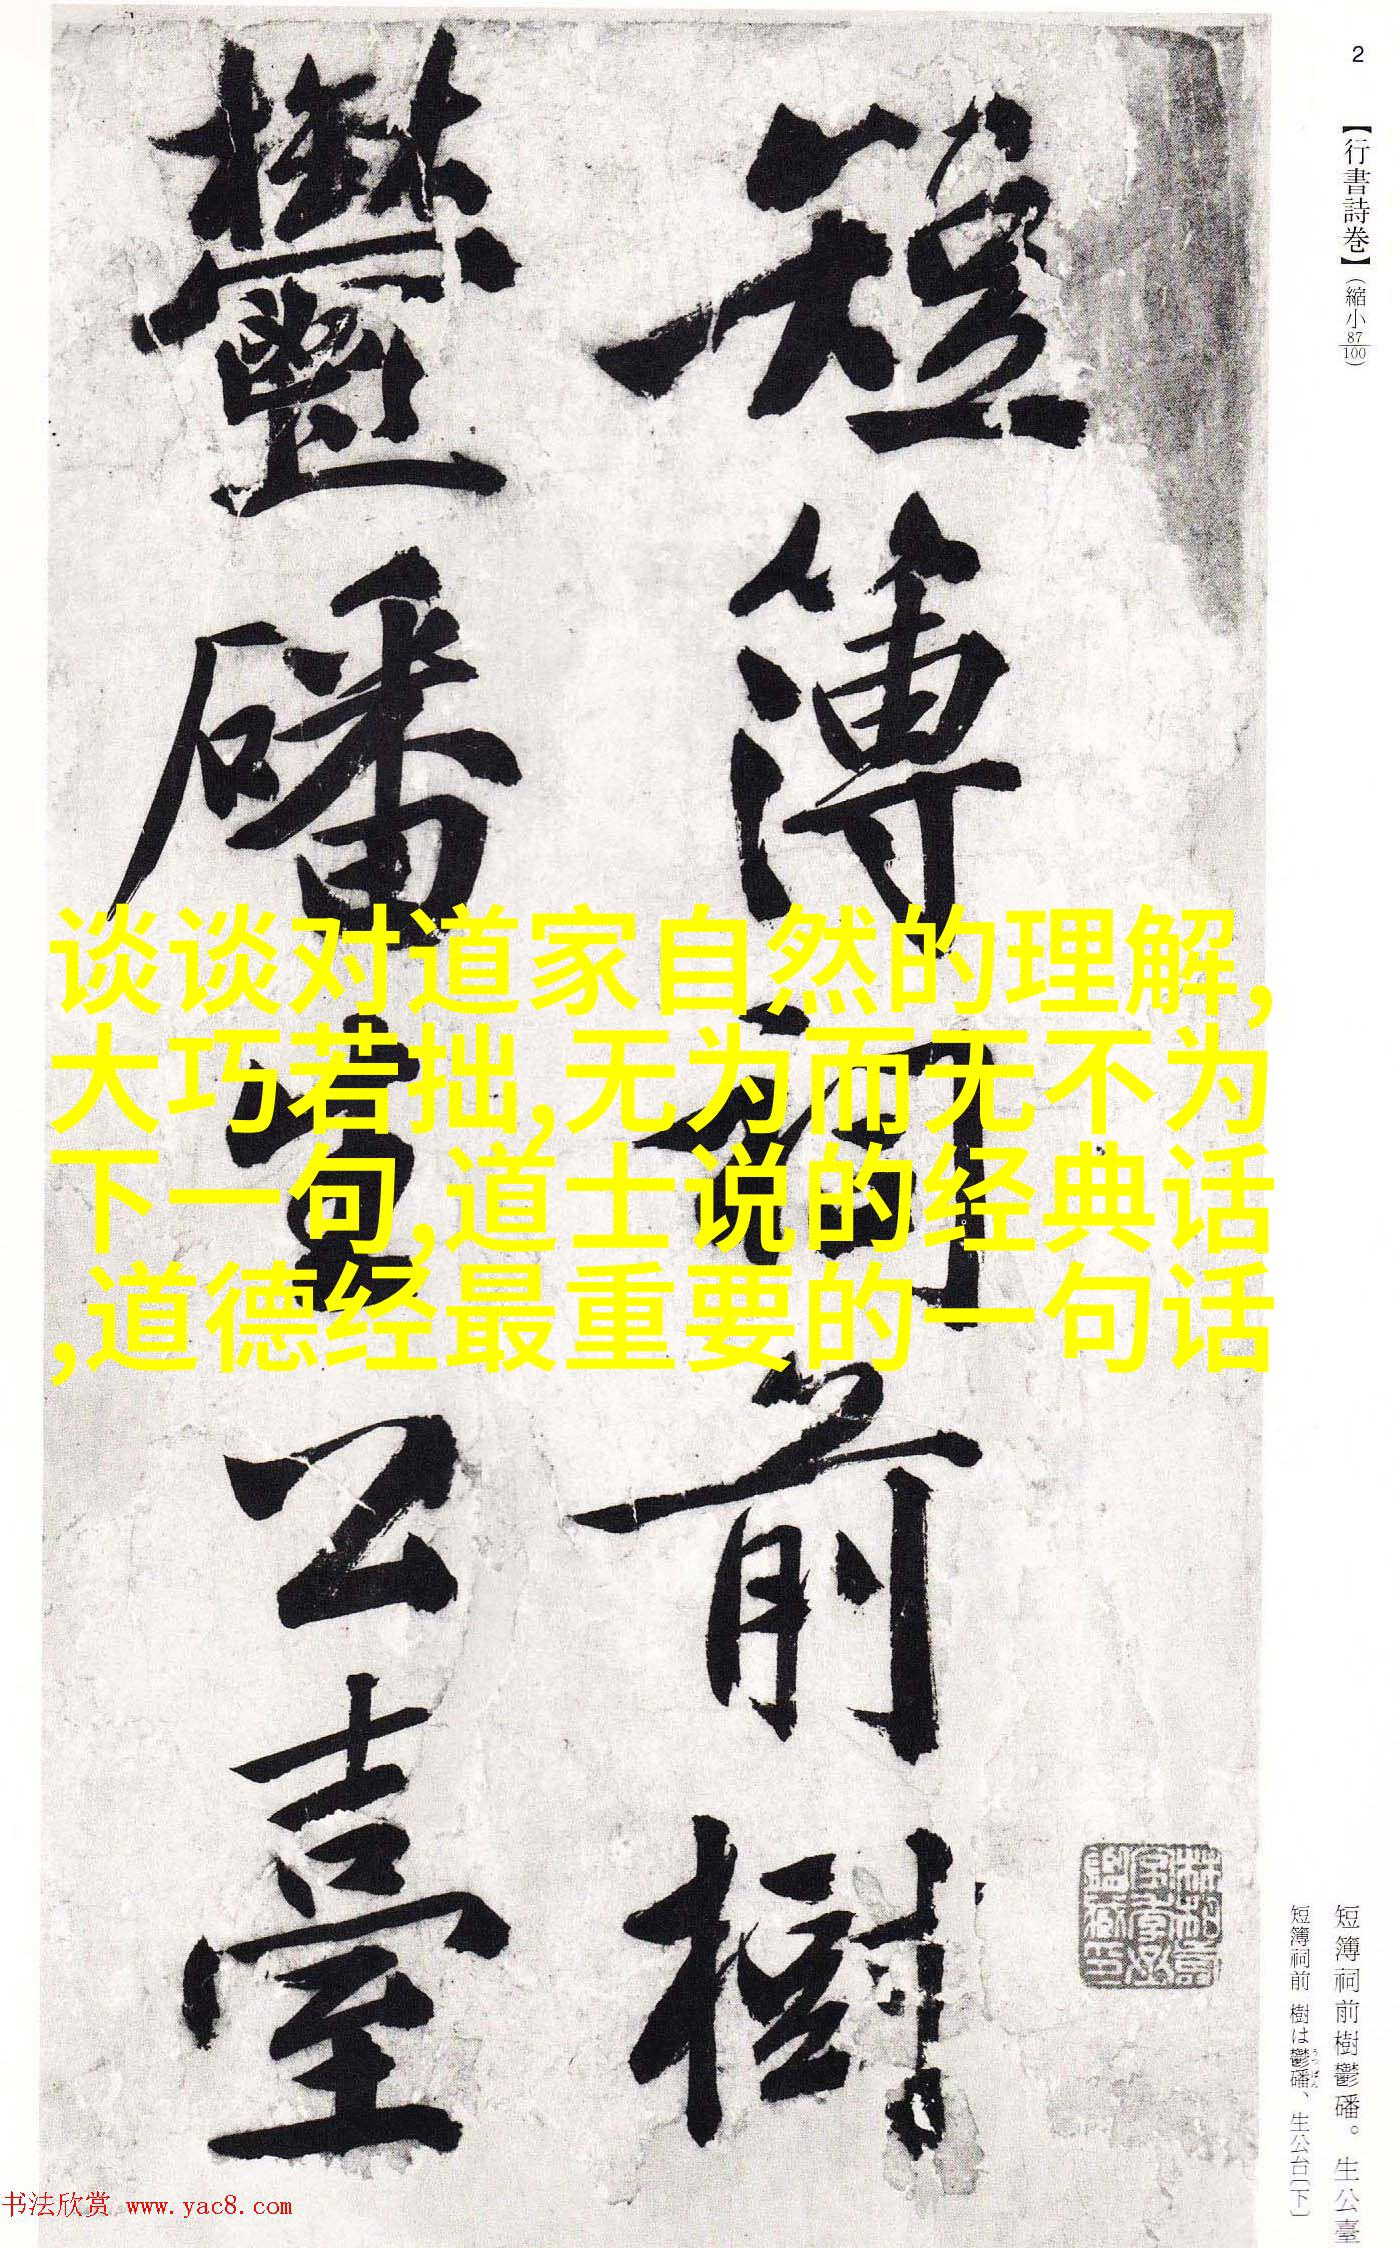 2
【行書詩巻】(縮小87/100)
短簿祠前樹
鬱磻生公臺
谈谈对道家自然的理解,
大巧若拙,无为而无不为
下一句,道士说的经典话
,道德经最重要的一句话
短簿祠前樹鬱磻。生公臺
短簿祠前 樹は鬱磻、生公台〔下〕
うつばん
书法欣赏 www.yac8.com